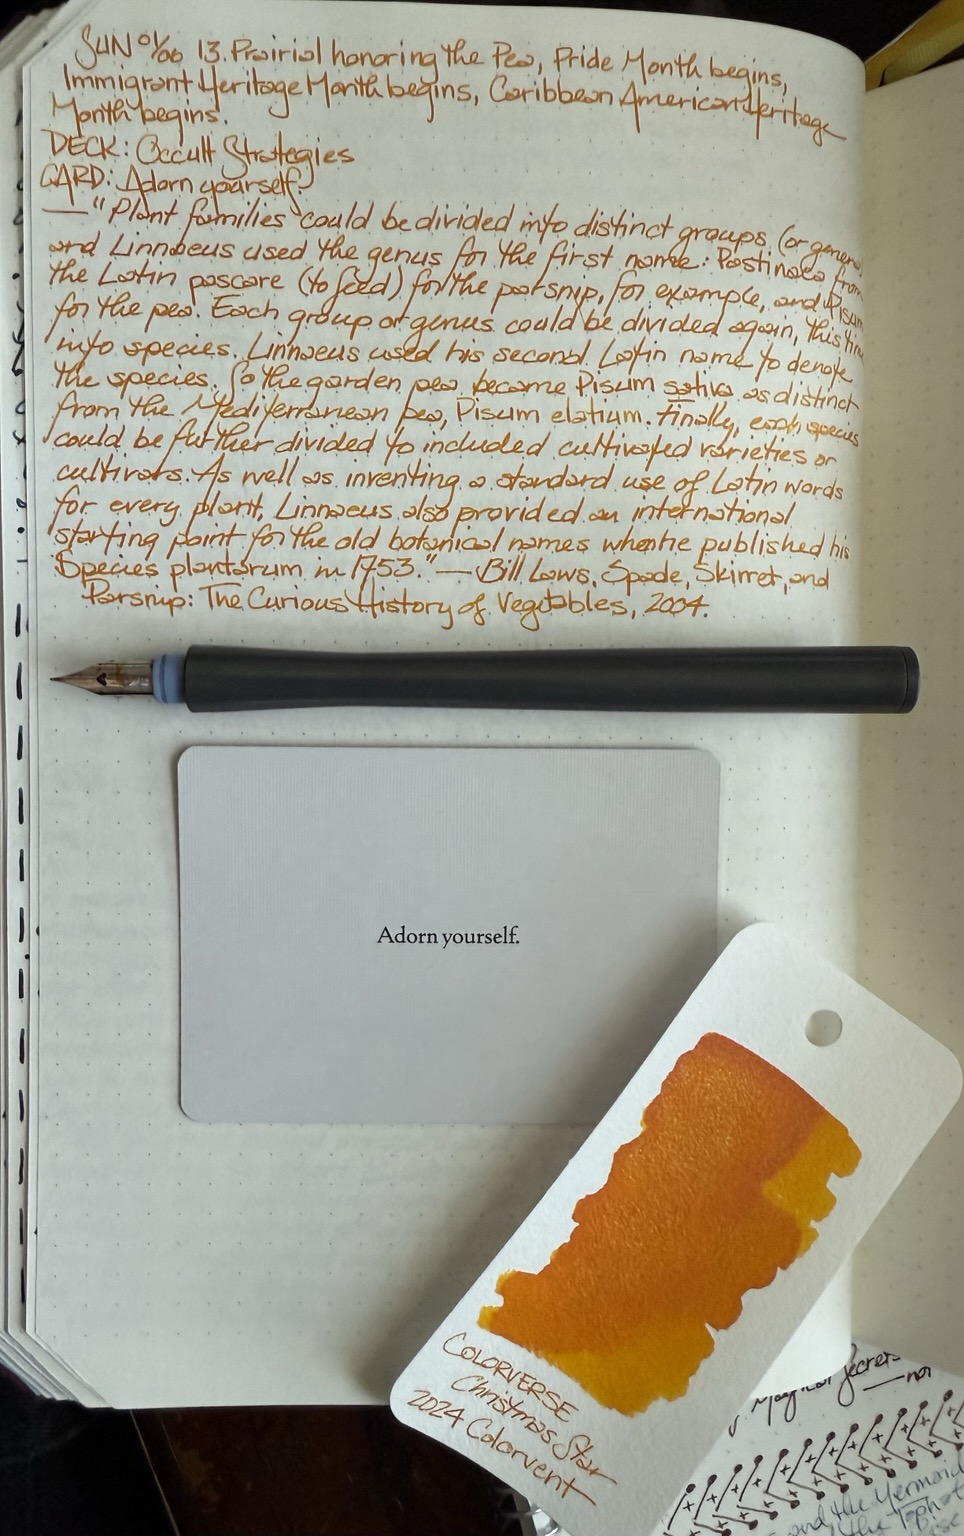 SUN 01/06 13. Prairial honoring the Pea, Pride Month begins,
Immigrant Heritage Month begins, Caribbean American Heritage
Month begins.
DECK: Occult Strategies
CARD: Adorn yourself.
—"Plant families could be divided into distinct groups (or genera)
and Linnaeus used the genus for the first name: Pastinaca from
the Latin pascare (to feed) for the parsnip, for example, and Pisum
for the pea. Each group or genus could be divided again, this time
into species. Linnaeus used his second Latin name to denote
the species. So the garden pea became Pisum sativa as distinct
from the Mediterranean pea, Pisum elatium. Finally, each species
could be further divided to included cultivated varieties or
cultivars. As well as inventing a standard use of Latin words
for every plant, Linnaeus also provided an international
starting point for the old botanical names when he published his
Species plantarum in 1753." — Bill Laws, Spade, Skirret, and
Parsnip: The Curious History of Vegetables, 2004.
Adorn yourself.
COLORVERSE
Christmas Star
2024 Colorvent
Magical Secrets
— not
and the Mermaid
the